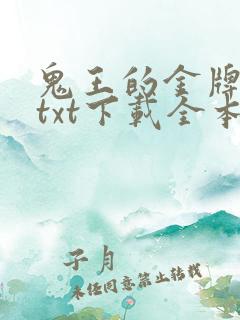 鬼王的金牌
txt下載全本
子月
未经同意禁止转载